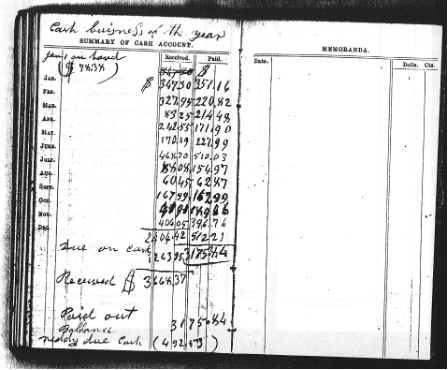 Cash buisness of the year
SUMMARY OF CASH ACCOUNT.
Jan 1 on hand
Received. Paid.
($ 78.38)
$
Jan. $ 347.30 351.16
Feb. 327.95 220.82
Mar. 83 25 214.48
Apr. 242.55 171.90
May. 170.19 227.99
June. 468.70 510.03
July. 154.97
Aug. 60.45 62.87
Sept. 167.99 162.99
Oct.
Nov. 406.05 396.76
Dec. 2406.42 512 21
Due on Cash 1263.95 3175.84
Received $ 3668.37
Paid out 3175.84
Ballance
ready due Cash (492.53)
MEMORANDA.
Date. Dolls. Cts.